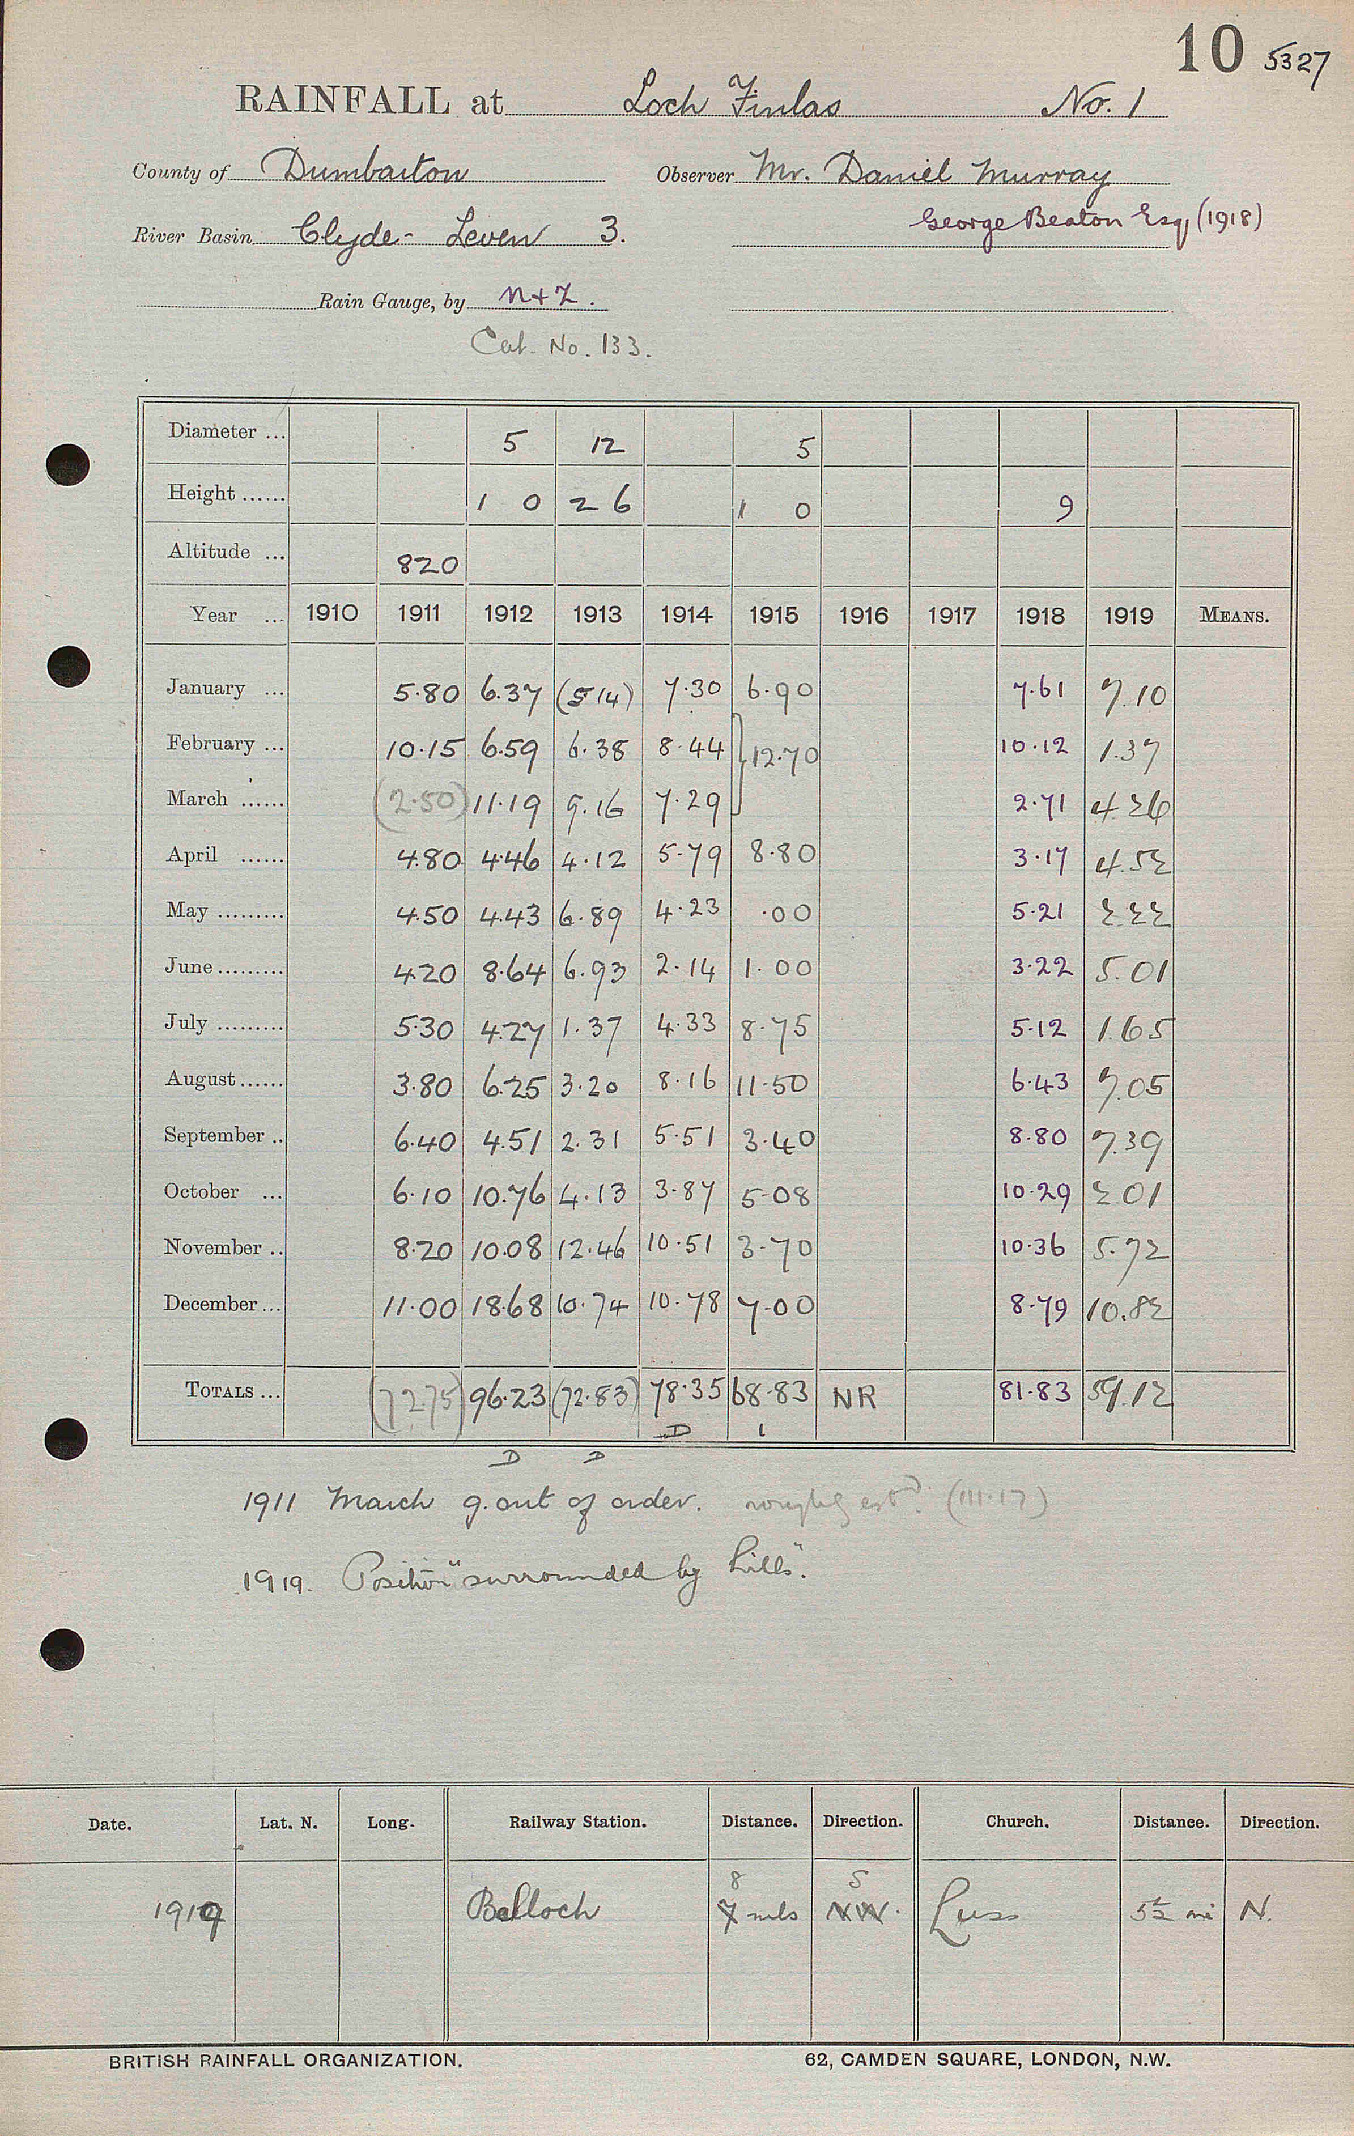 10 5327
RAINFALL at Loch Finlas No. 1
County of Dumbarton Observer Mr. Daniel Murray
River Basin Clyde - Leven 3. George Beaton Esq (1918)
Rain Gauge, by N+Z.
Cat. No. 133.
Diameter ... 5 12 5
Height ...... 1 0 2 6 1 0 9
Altitude ... 820
Year ... 1910 1911 1912 1913 1914 1915 1916 1917 1918 1919 MEANS.
January ... 5.80 6.37 (5.14) 7.30 6.90 7.61 7.10
February ... 10.15 6.59 6.38 8.44 } 12.70 10.12 1.37
March ...... (2.50) 11.19 9.16 7.29 2.71 4.26
April ...... 4.80 4.46 4.12 5.79 8.80 3.17 4.52
May ......... 4.50 4.43 6.89 4.23 .00 5.21 2.22
June ......... 4.20 8.64 6.93 2.14 1.00 3.22 5.01
July ......... 5.30 4.27 1.37 4.33 8.75 5.12 1.65
August ...... 3.80 6.25 3.20 8.16 11.50 6.43 7.05
September .. 6.40 4.51 2.31 5.51 3.40 8.80 7.39
October ... 6.10 10.76 4.13 3.87 5.08 10.29 2.01
November .. 8.20 10.08 12.46 10.51 3.70 10.36 5.72
December ... 11.00 18.68 10.74 10.78 7.00 8.79 10.82
TOTALS ... (72.75) 96.23 (72.83) 78.35 68.83 NR 81.83 59.12
D 1
D D
1911 March g. out of order. roughly estd. (III.17)
1919. Position "surrounded by hills".
Date. Lat. N. Long. Railway Station. Distance. Direction. Church. Distance. Direction.
8 S
1919 Balloch 7 mls NW. Luss 5½ mi N.
BRITISH RAINFALL ORGANIZATION. 62, CAMDEN SQUARE, LONDON, N.W.